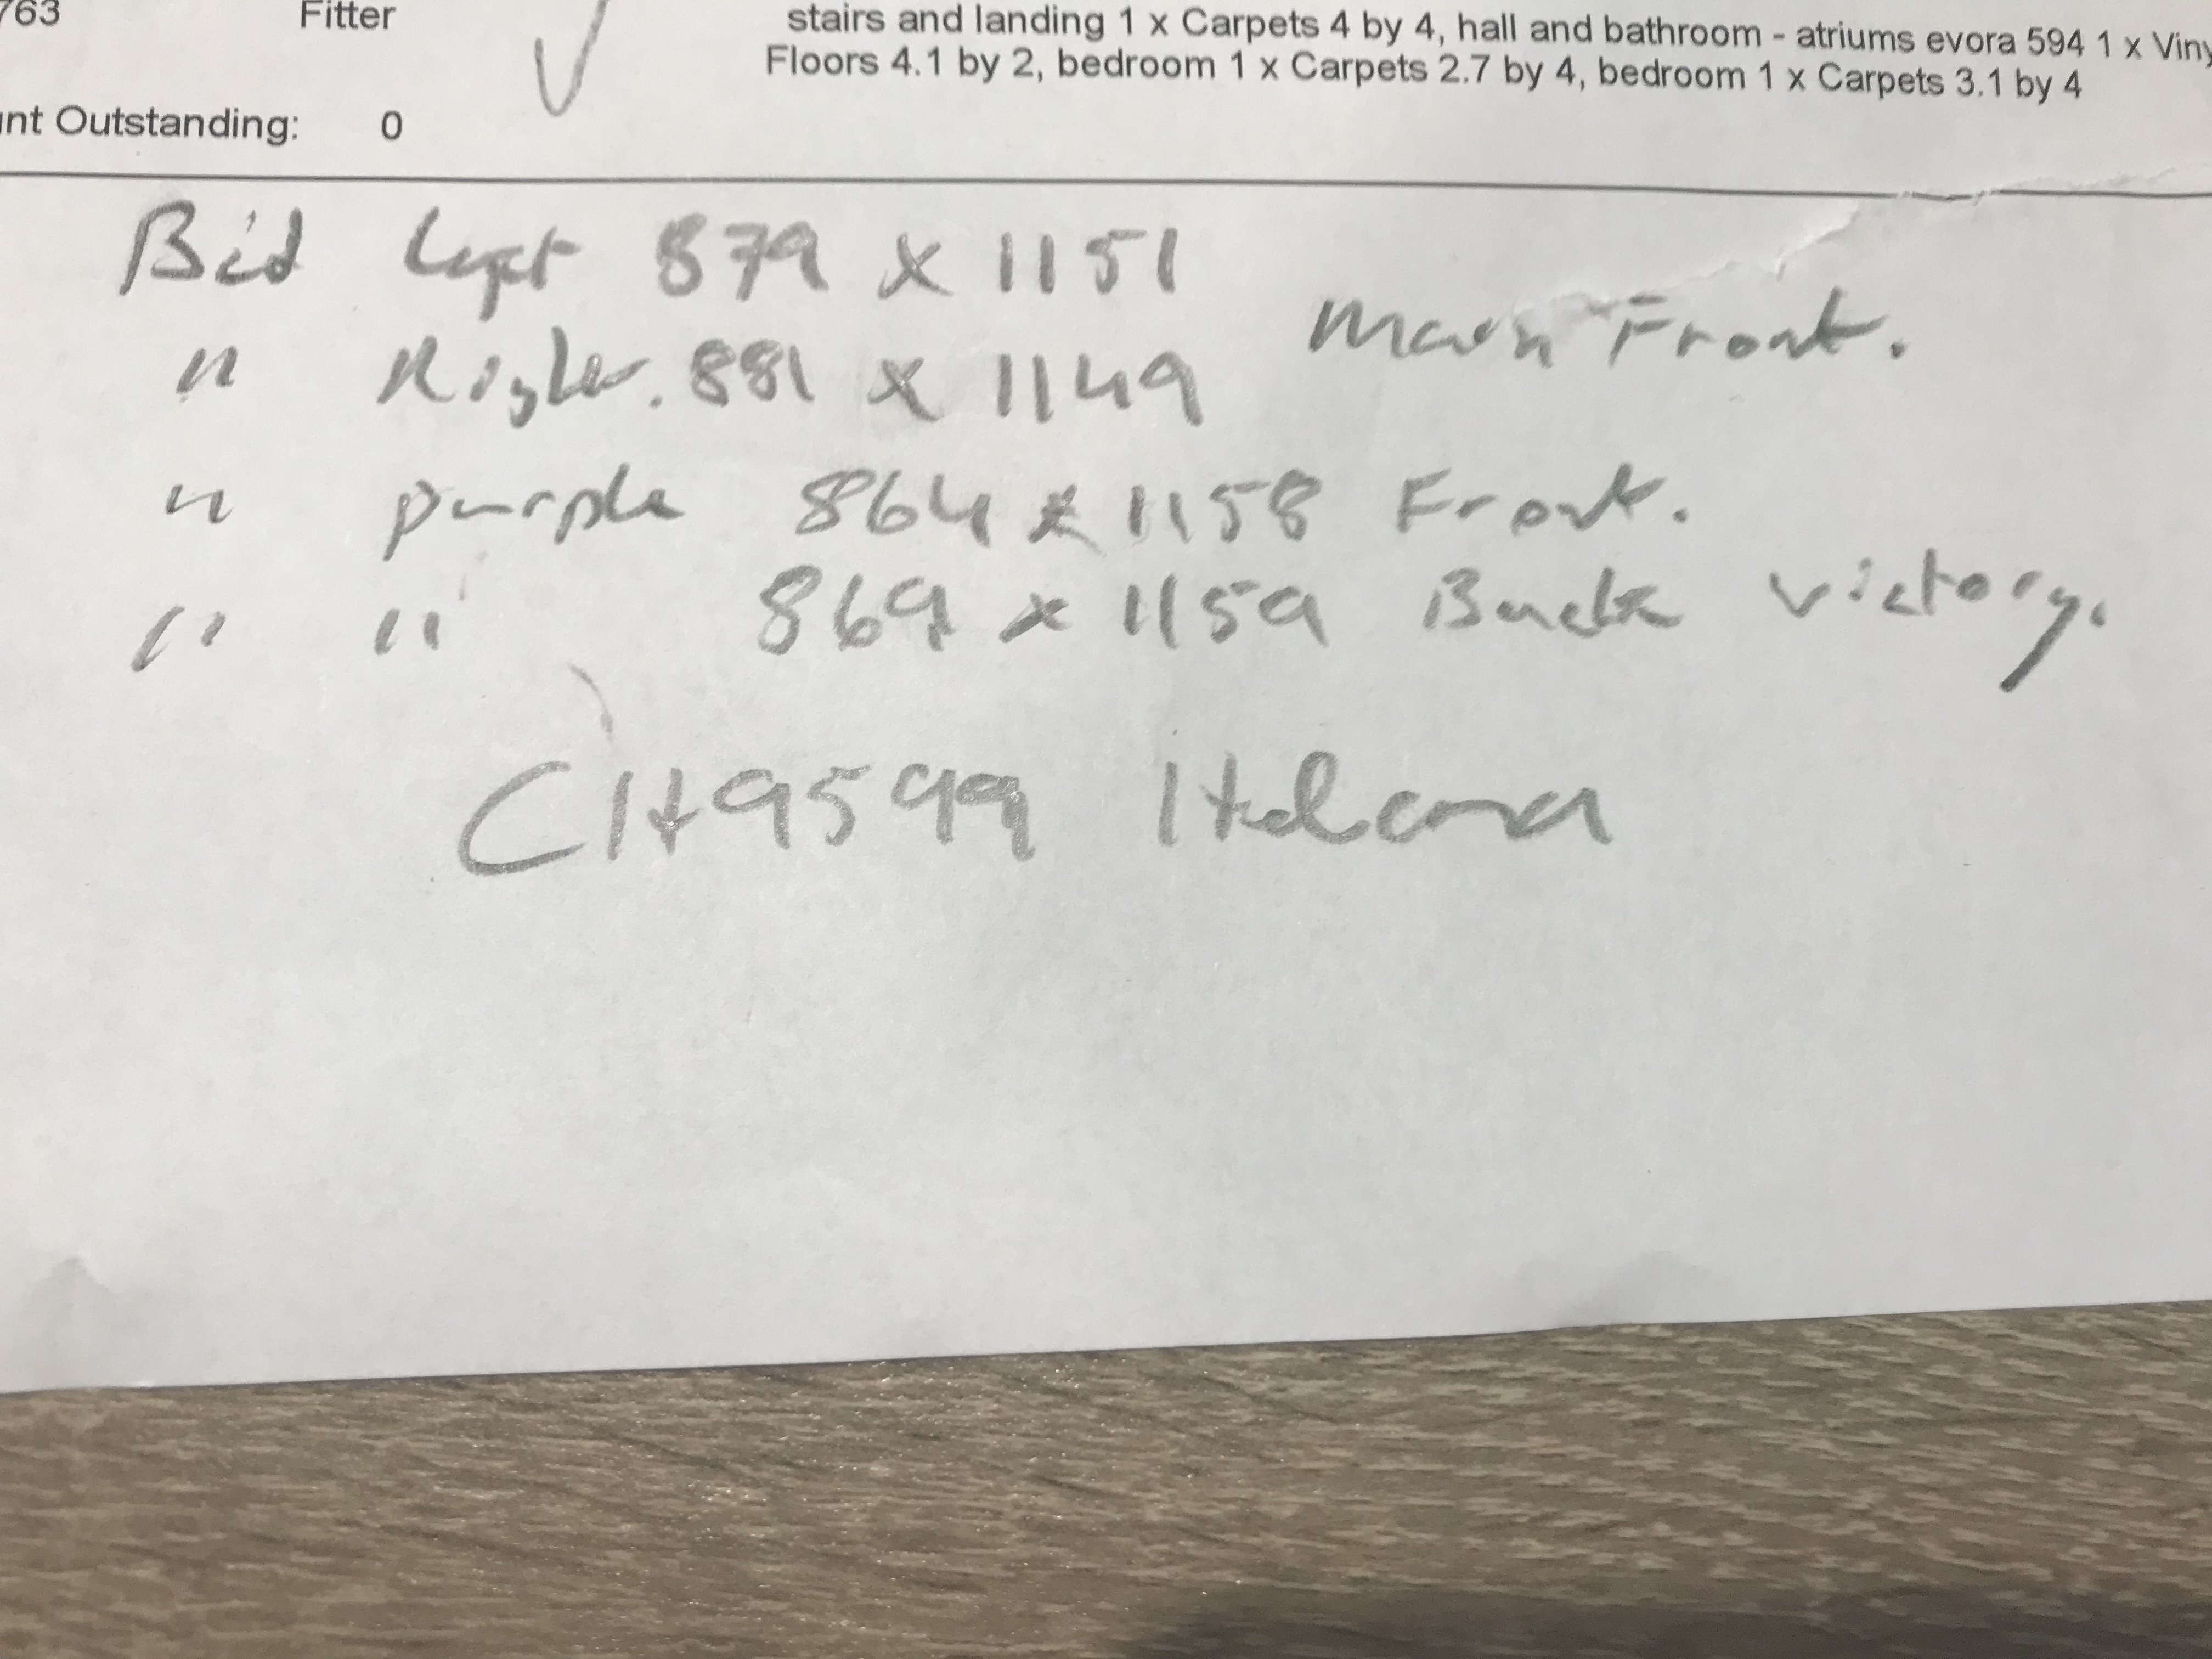 763 Fitter stairs and landing 1 x Carpets 4 by 4, hall and bathroom - atriums evora 594 1 x Viny
Floors 4.1 by 2, bedroom 1 x Carpets 2.7 by 4, bedroom 1 x Carpets 3.1 by 4
unt Outstanding: 0
Bed Left 879 x 1151
Main Front.
" Right. 881 x 1149
" purple 864 x 1158 Front.
" " 869 x 1159 Back victory.
CH9599